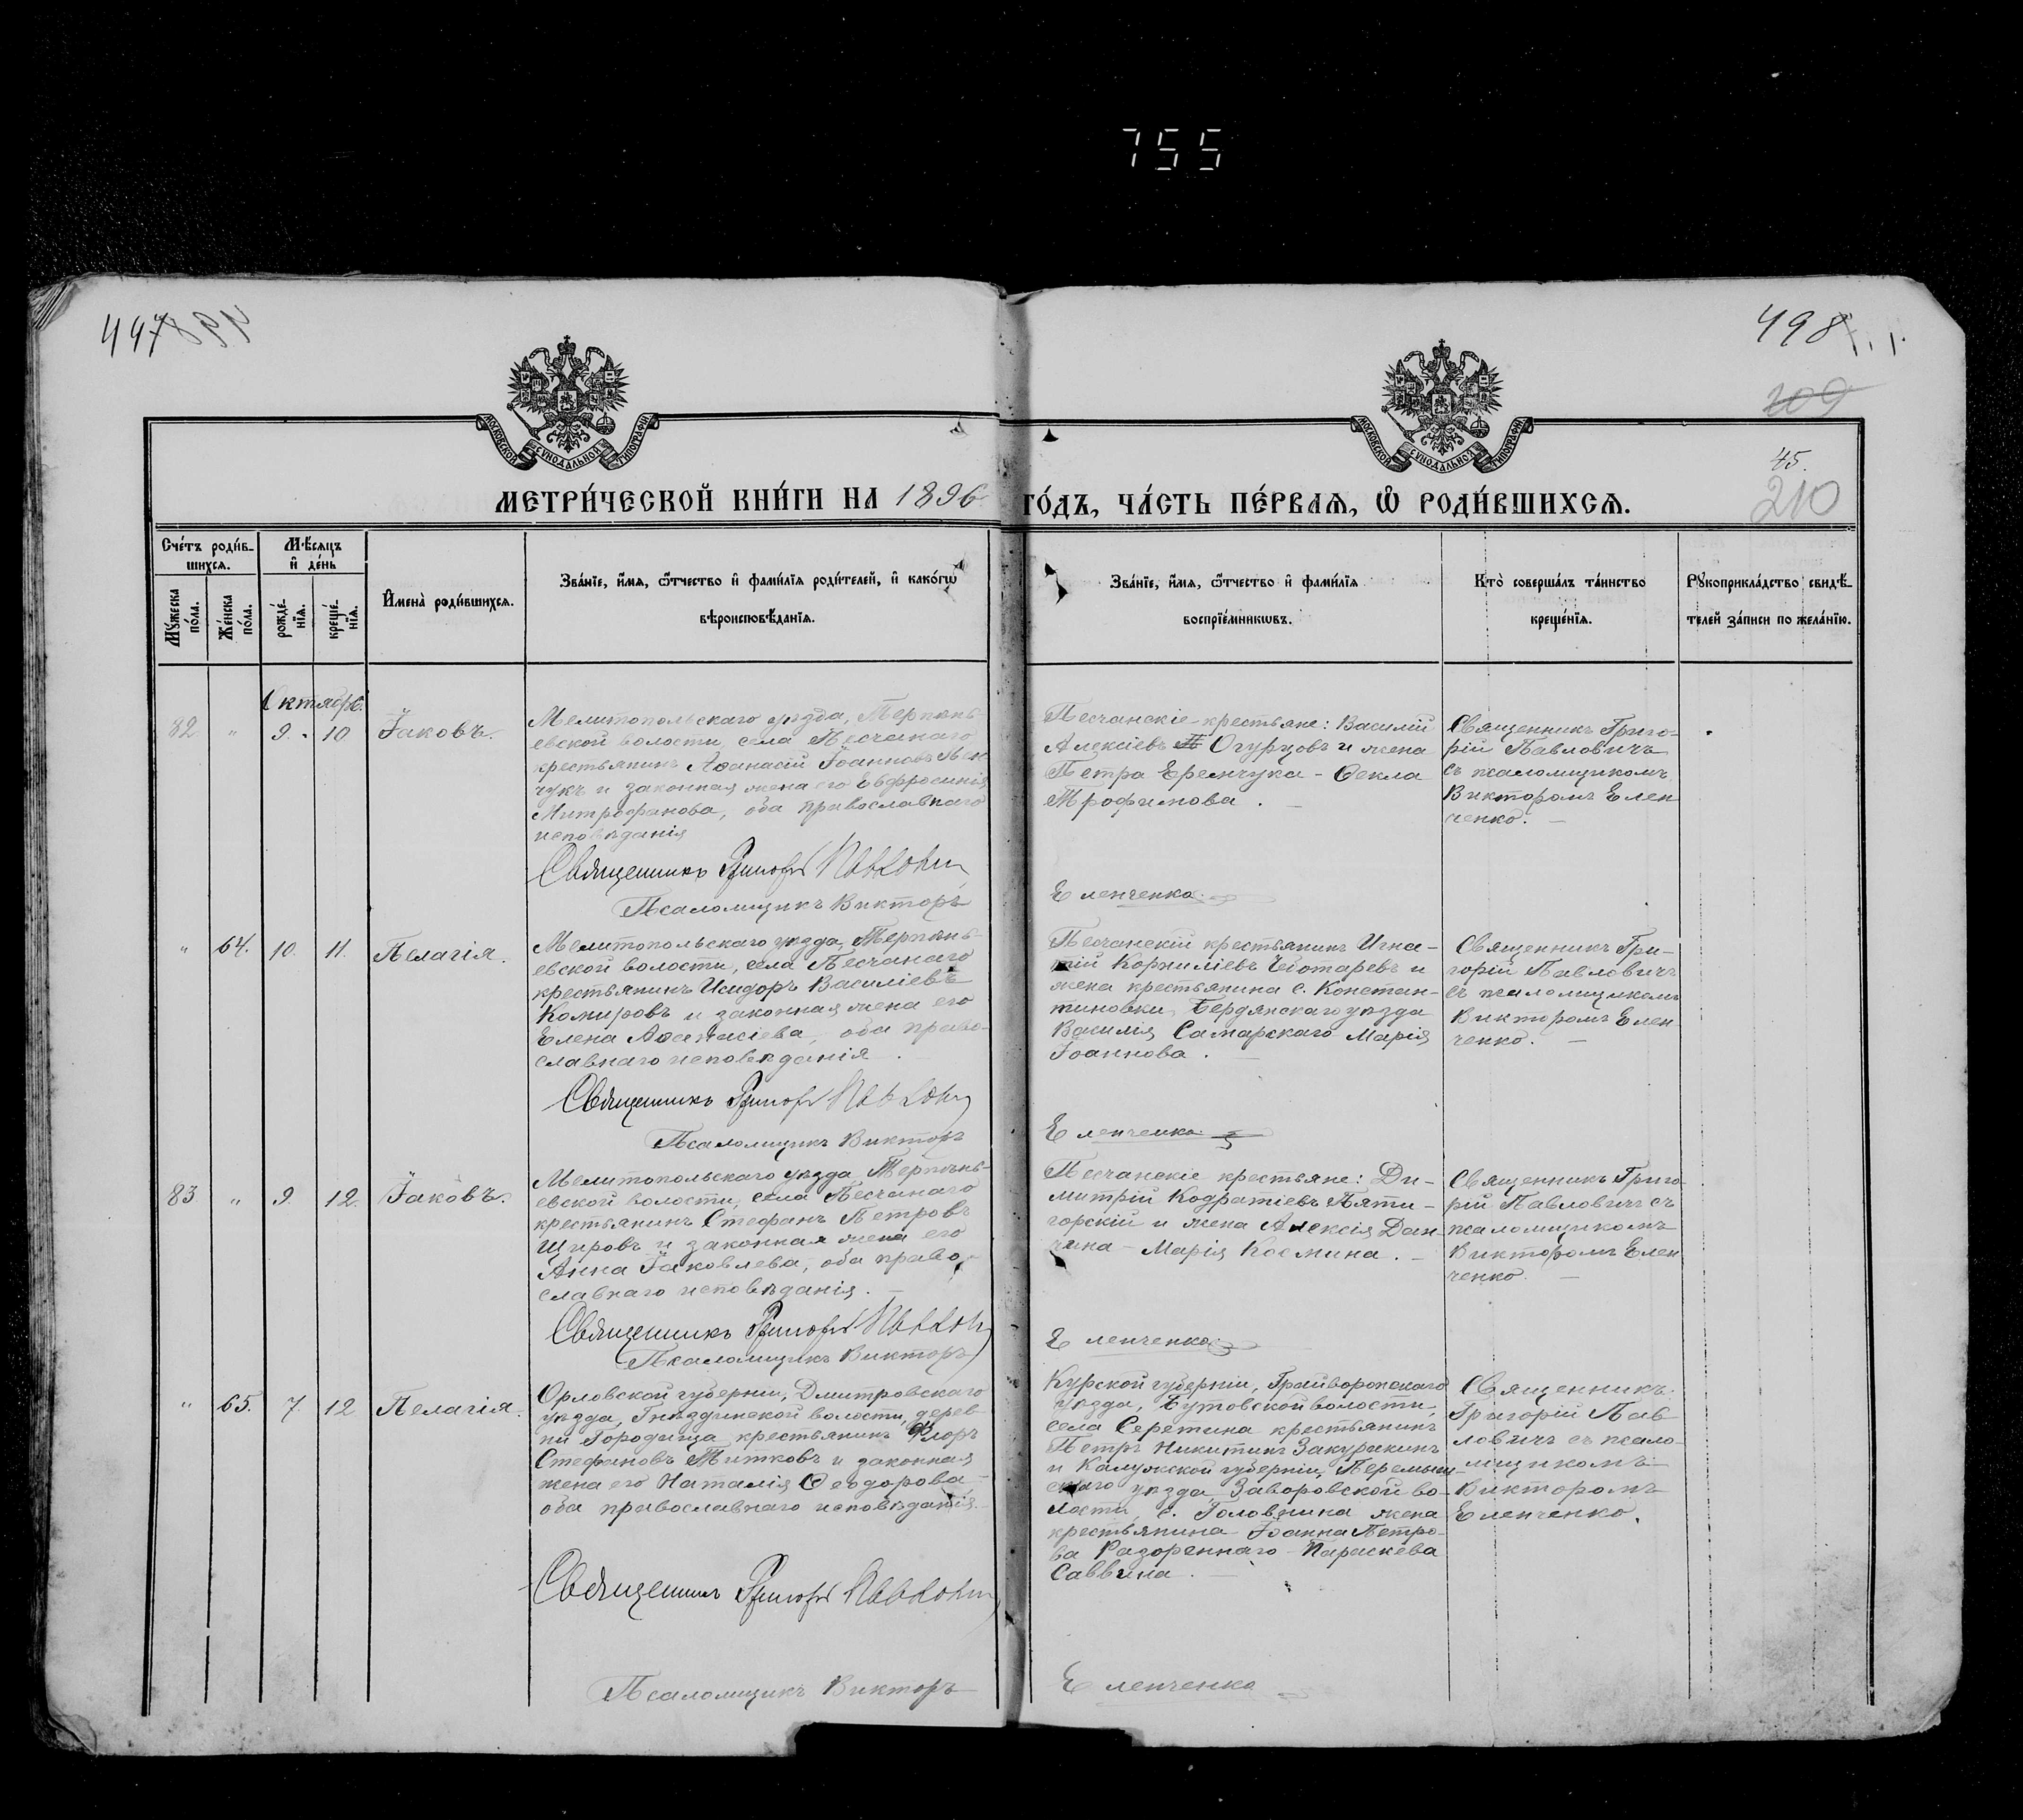 755
447
498
209
45.
210
МОСКОВСКОЙ СѴНОДАЛЬНОЙ ТИПОГРАФІИ
МОСКОВСКОЙ СѴНОДАЛЬНОЙ ТИПОГРАФІИ
МЕТРИ́ЧЕСКОЙ КНИ́ГИ НА 1896 ГО́ДЪ, ЧА́СТЬ ПЕ́РВАЯ, Ѡ҆ РОДИ́ВШИХСЯ.
Сче́тъ роди́в-
шихся.
Мѣ́сяцъ
и҆ де́нь
Мꙋ́жеска по́ла.
Же́нска по́ла.
рожде́-
нїя.
креще́-
нїя.
И҆мена̀ роди́вшихся.
Зва́нїе, и҆́мя, ѻ҆́тчество и҆ фами́лїя роди́телей, и҆ како́гѡ
вѣроисповѣ́данїя.
Зва́нїе, и҆́мя, ѻ҆́тчество и҆ фами́лїя
воспрїе́мникѡвъ.
Кто̀ соверша́лъ та́инство
креще́нїя.
Рꙋкоприкла́дство свидѣ́-
телей за́писи по жела́нїю.
Октябрь.
82 " 9. 10 Іаковъ.
Мелитопольскаго уѣзда, Терпѣнь-
евской волости, села Песчанаго
крестьянинъ Аѳанасій Іоанновъ
чукъ и законная жена его Евфросинія
Митрофанова, оба православнаго
исповѣданія
Священникъ Григорій Павловичъ
Псаломщикъ Викторъ
Песчанскіе крестьяне: Василій
Алексіевъ Огурцовъ и жена
Петра Еремчука - Ѳекла
Трофимова.
Еленченко
Священникъ Григо-
рій Павловичъ
съ псаломщикомъ
Викторомъ Елен
ченко.
" 64. 10. 11. Пелагія.
Мелитопольскаго уѣзда, Терпѣнь-
евской волости, села Песчанаго
крестьянинъ Исидоръ Василіевъ
Комировъ и законная жена его
Елена Аѳанасіева, оба право-
славнаго исповѣданія.
Священникъ Григорій Павловичъ
Псаломщикъ Викторъ
Песчанскій крестьянинъ Игна-
тій Корниліевъ Чеботаревъ и
жена крестьянина с. Констан-
тиновки, Бердянскаго уѣзда
Василія Самарскаго Марія
Іоаннова.
Еленченко
Священникъ Гри-
горій Павловичъ
съ псаломщикомъ
Викторомъ Елен
ченко.
83 " 9. 12. Іаковъ.
Мелитопольскаго уѣзда, Терпѣнь-
евской волости, села Песчанаго
крестьянинъ Стефанъ Петровъ
Щировъ и законная жена его
Анна Іаковлева, оба право-
славнаго исповѣданія.
Священникъ Григорій Павловичъ
Псаломщикъ Викторъ
Песчанскіе крестьяне: Ди-
митрій Кодратіевъ Пяти-
горскій и жена Алексія Дан-
чина - Марія Космина.
Еленченко
Священникъ Григо
рій Павловичъ съ
псаломщикомъ
Викторомъ Елен
ченко.
" 65. 7. 12 Пелагія.
Орловской губерніи, Дмитровскаго
уѣзда, Гнѣздинской волости, дерев-
ни Городища крестьянинъ Флоръ
Стефановъ Титковъ и законная
жена его Наталія Ѳеодорова
оба православнаго исповѣданія.
Священникъ Григорій Павловичъ
Псаломщикъ Викторъ
Курской губерніи, Грайворонскаго
уѣзда, Бутовской волости,
села Серетина крестьянинъ
Петръ Никитинъ Закурякинъ
и Калужской губерніи, Перемышл-
скаго уѣзда Заборовской во-
лости, с. Головнина жена
крестьянина Іоанна Петро-
ва Разореннаго Параскева
Саввина.
Еленченко
Священникъ
Григорій Пав
ловичъ съ псало-
мщикомъ
Викторомъ
Еленченко.